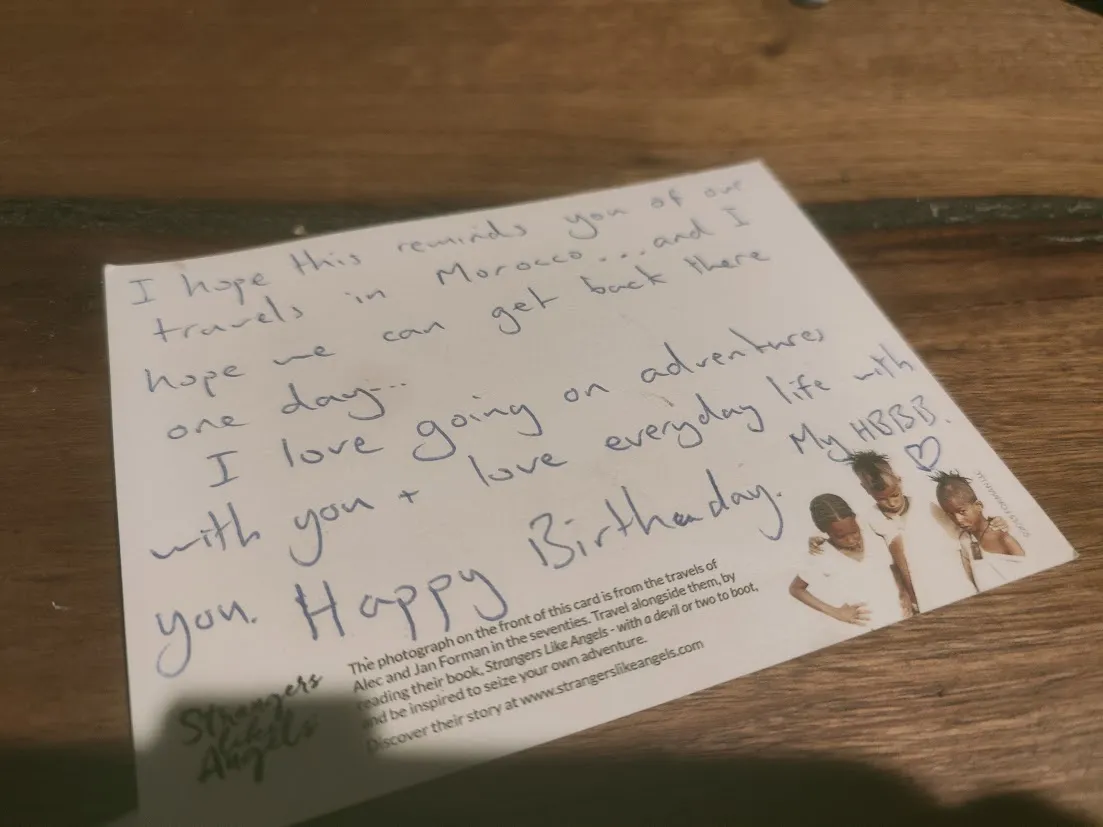 I hope this reminds you of our
travels in Morocco...and I
hope we can get back there
one day...
I love going on adventures
with you + love everyday life with
you. Happy Birthday.
My HBBB.
The photograph on the front of this card is from the travels of
Alec and Jan Forman in the seventies. Travel alongside them, by
reading their book, Strangers Like Angels - with a devil or two to boot,
and be inspired to seize your own adventure.
Discover their story at www.strangerslikeangels.com
Strangers
Like
Angels